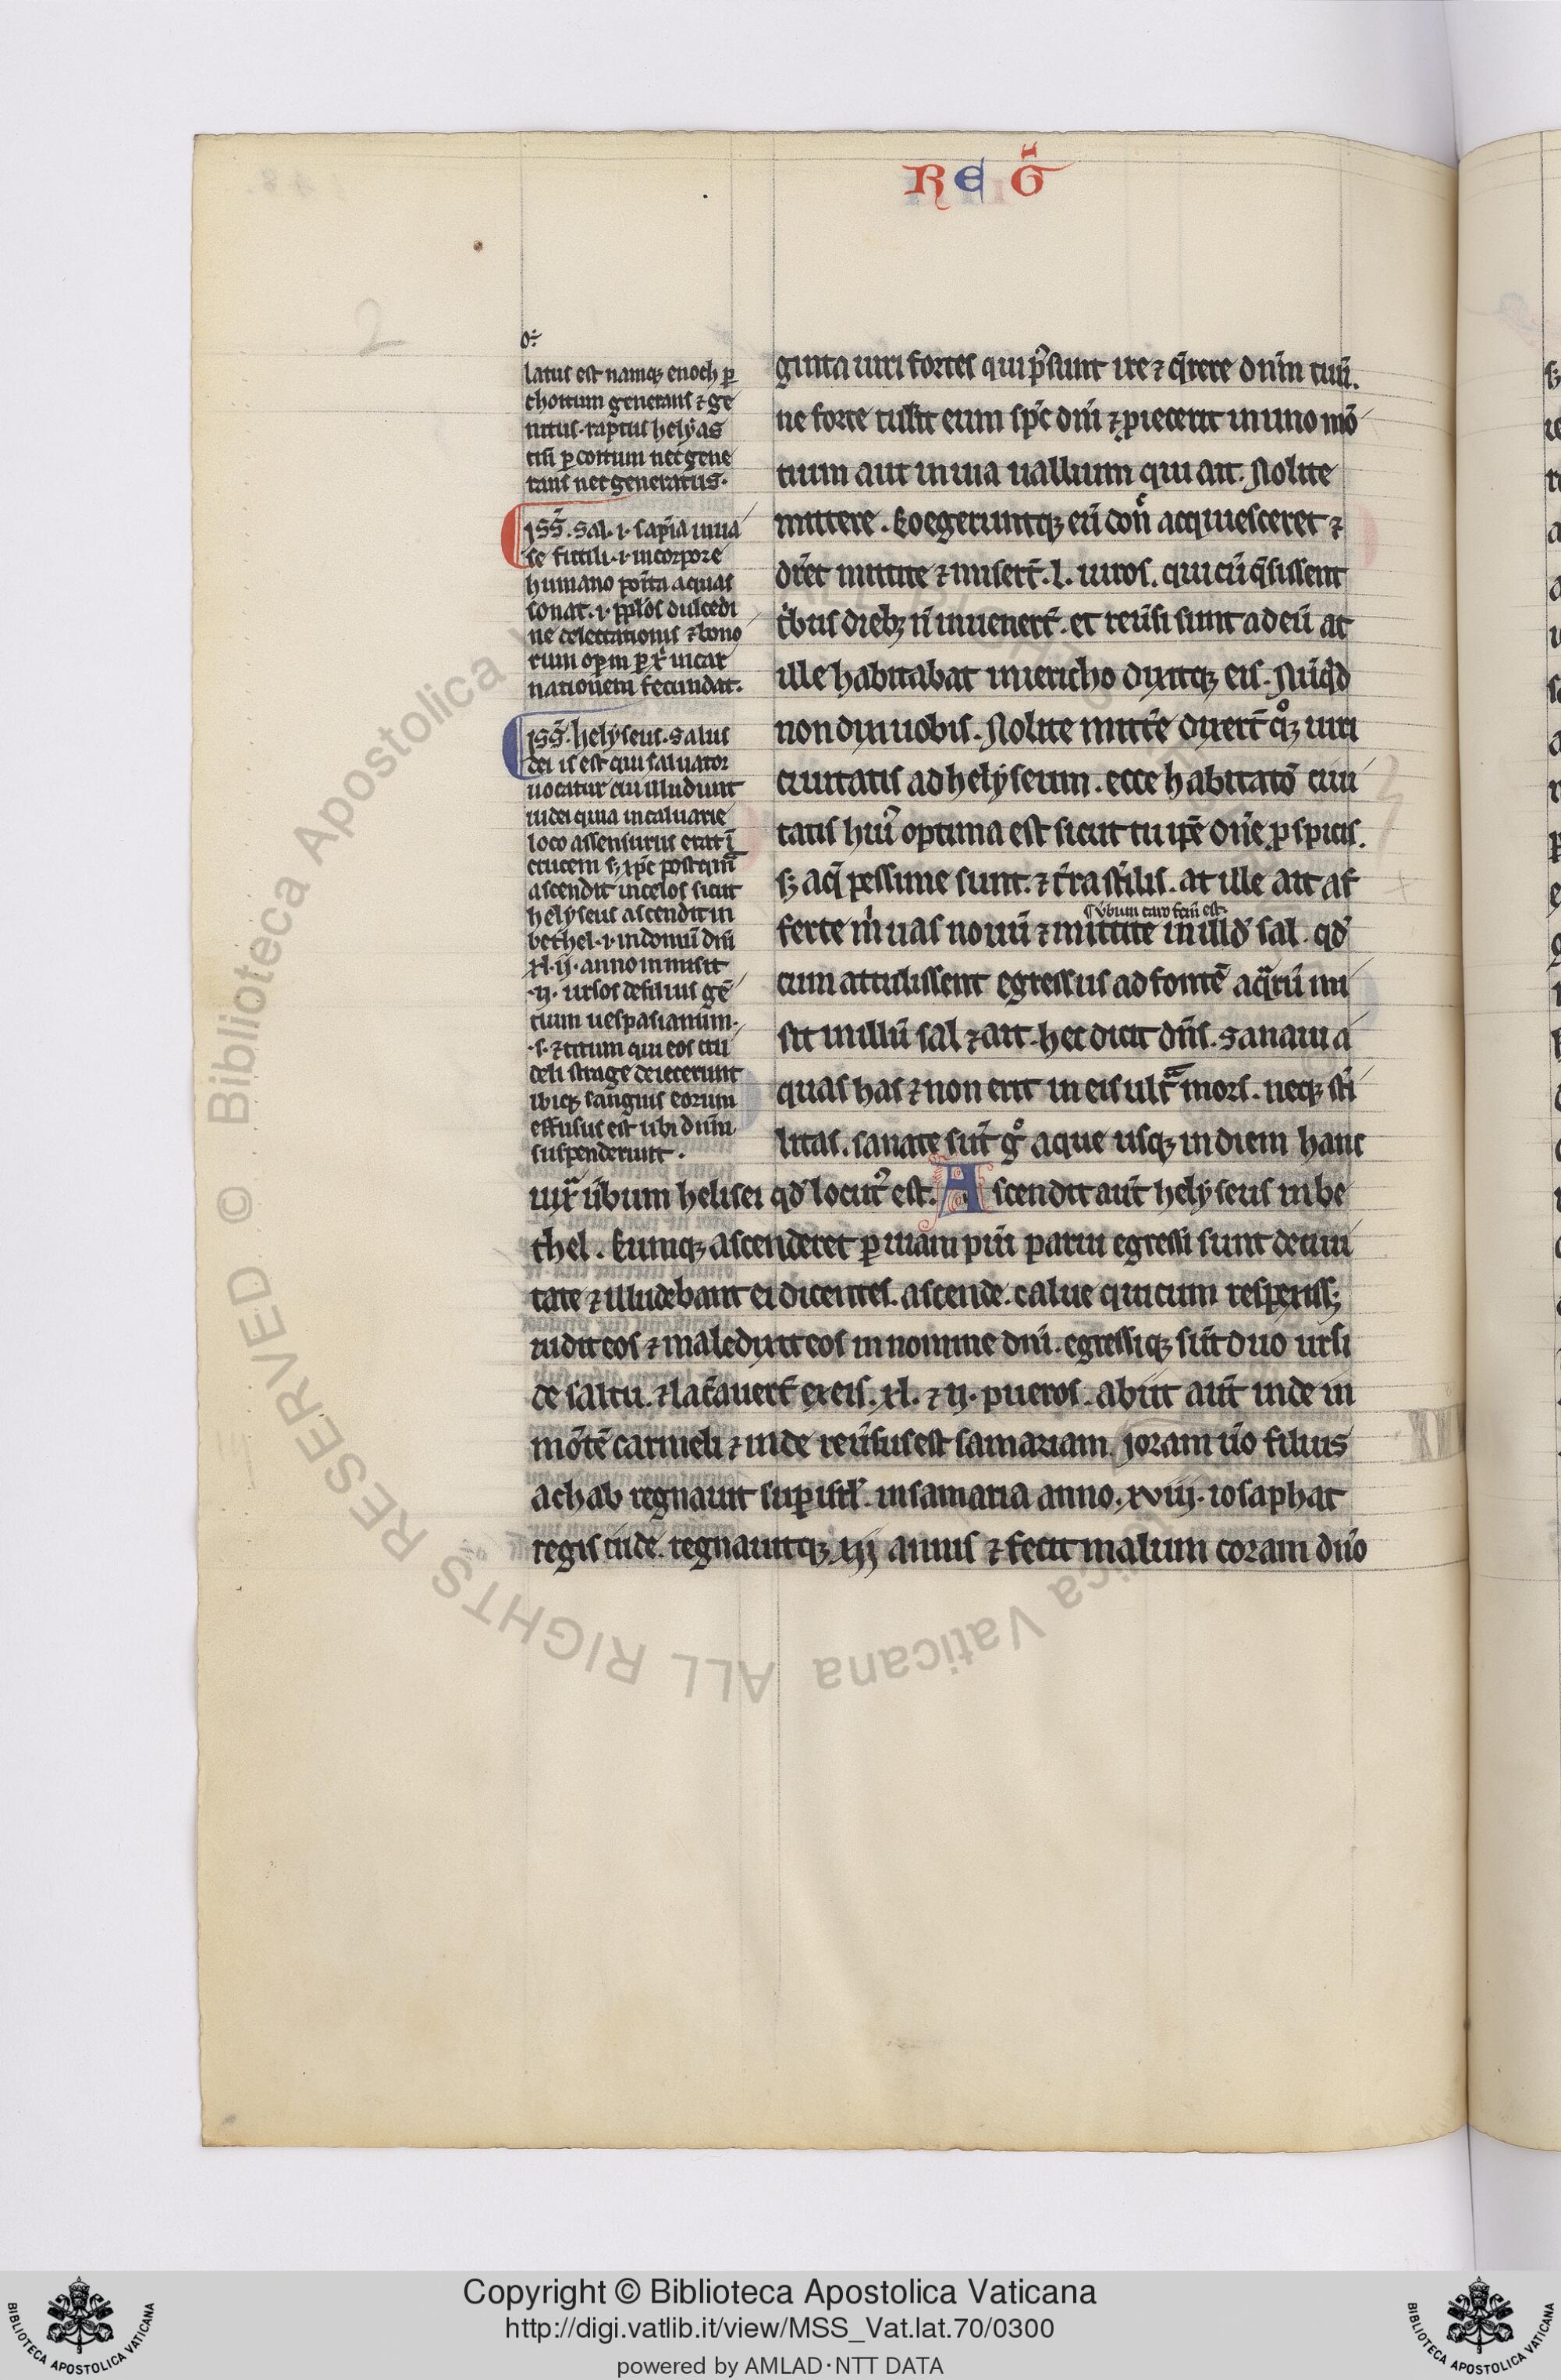 REG̃
latus est namq; enoch ꝑ
choitum generans ⁊ ge
nitus. raptus helyas
ꝑ coitum nec gene
rans nec generatus.
ysš. sal .i. sapīa in ua
se fictili .i. in corpore
humano aquas
sanat .i. pp̄los dulcedi
ne delectationis ⁊ bono
rum oꝑm ꝑ xp̄i incar
nationem fecundat.
ysš. helyseus. salus
dei is est qui saluator
uocatur cui illudunt
iudei quia in caluarie
loco assensurus erat ī
crucem s; xp̄c postqm̄
ascendit in celos sicut
helyseus ascendit in
bethel .i. in domū dn̄i
xl. ij. anno inmisit
.ij. ursos de siluis gē
tium uespasianum.
.s. ⁊ titum qui eos cru
deli strage deiecerunt
ibiq; sanguis eorum
effusus est ubi dn̄m
suspenderunt.
ginta uiri fortes qui p̄sunt ire ⁊ q̄rere dnm̄ tuū.
ne forte tulit eum sp̄c dn̄i ⁊ ꝓiecerit in uno mō
tium aut in una uallium qui ait. Nolite
mittere. Coegeruntq; eū don̄ acquiesceret ⁊
dr̄et mittite ⁊ misert̄. l. uiros. qui cū q̄sissent
t'bus dieb; n̄ inuenert̄. et reūsi sunt ad eū at
ille habitabat in iericho dixitq; eis. Nūqd
non dixi uobis. Nolite mitt'e dixert̄ q°; uiri
ciuitatis ad helyseum. ecce habitatō ciui
tatis hui' optima est sicut tu ip̄e dn̄e ꝑspicis.
s; aq̄ pessime sunt. ⁊ t'ra st'ilis. at ille ait af
¶ v̄bum caro fcm̄ est.
ferte m̄ uas nouū ⁊ mittite in illd' sal. qd'
cum attulissent egressus ad fontē aq̄rū mi
sit in illū sal ⁊ ait. hec dicit dn̄s. sanaui a
quas has ⁊ non erit in eis ult̄a mors. neq; st'i
litas. sanate sūt g° aque usq; in diem hanc
iux̄ ūbum helisei qd' locut' est. Ascendit aut̄ helyseus in be
thel. Cumq; ascenderet ꝑ uiam p'ui parui egressi sunt de ciui
tate ⁊ illudebant ei dicentes. ascende. calue qui cum respexiss;
uidit eos ⁊ maledixit eos in nomine dn̄i. egressiq; sūt duo ursi
de saltu. ⁊ lac̄auert̄ ex eis. xl. ⁊ ij. pueros. abiit aut̄ inde in
mōtē carmeli ⁊ inde reūsus est samariam. Joram ūo filius
achab regnauit suꝑ isrl'. in samaria anno. xviij. iosaphat
regis iude. regnauitq; xij annis ⁊ fecit malum coram dn̄o
2
Copyright © Biblioteca Apostolica Vaticana
http://digi.vatlib.it/view/MSS_Vat.lat.70/0300
powered by AMLAD·NTT DATA
BIBLIOTECA APOSTOLICA VATICANA
BIBLIOTECA APOSTOLICA VATICANA
Biblioteca Apostolica Vaticana ALL RIGHTS RESERVED ©